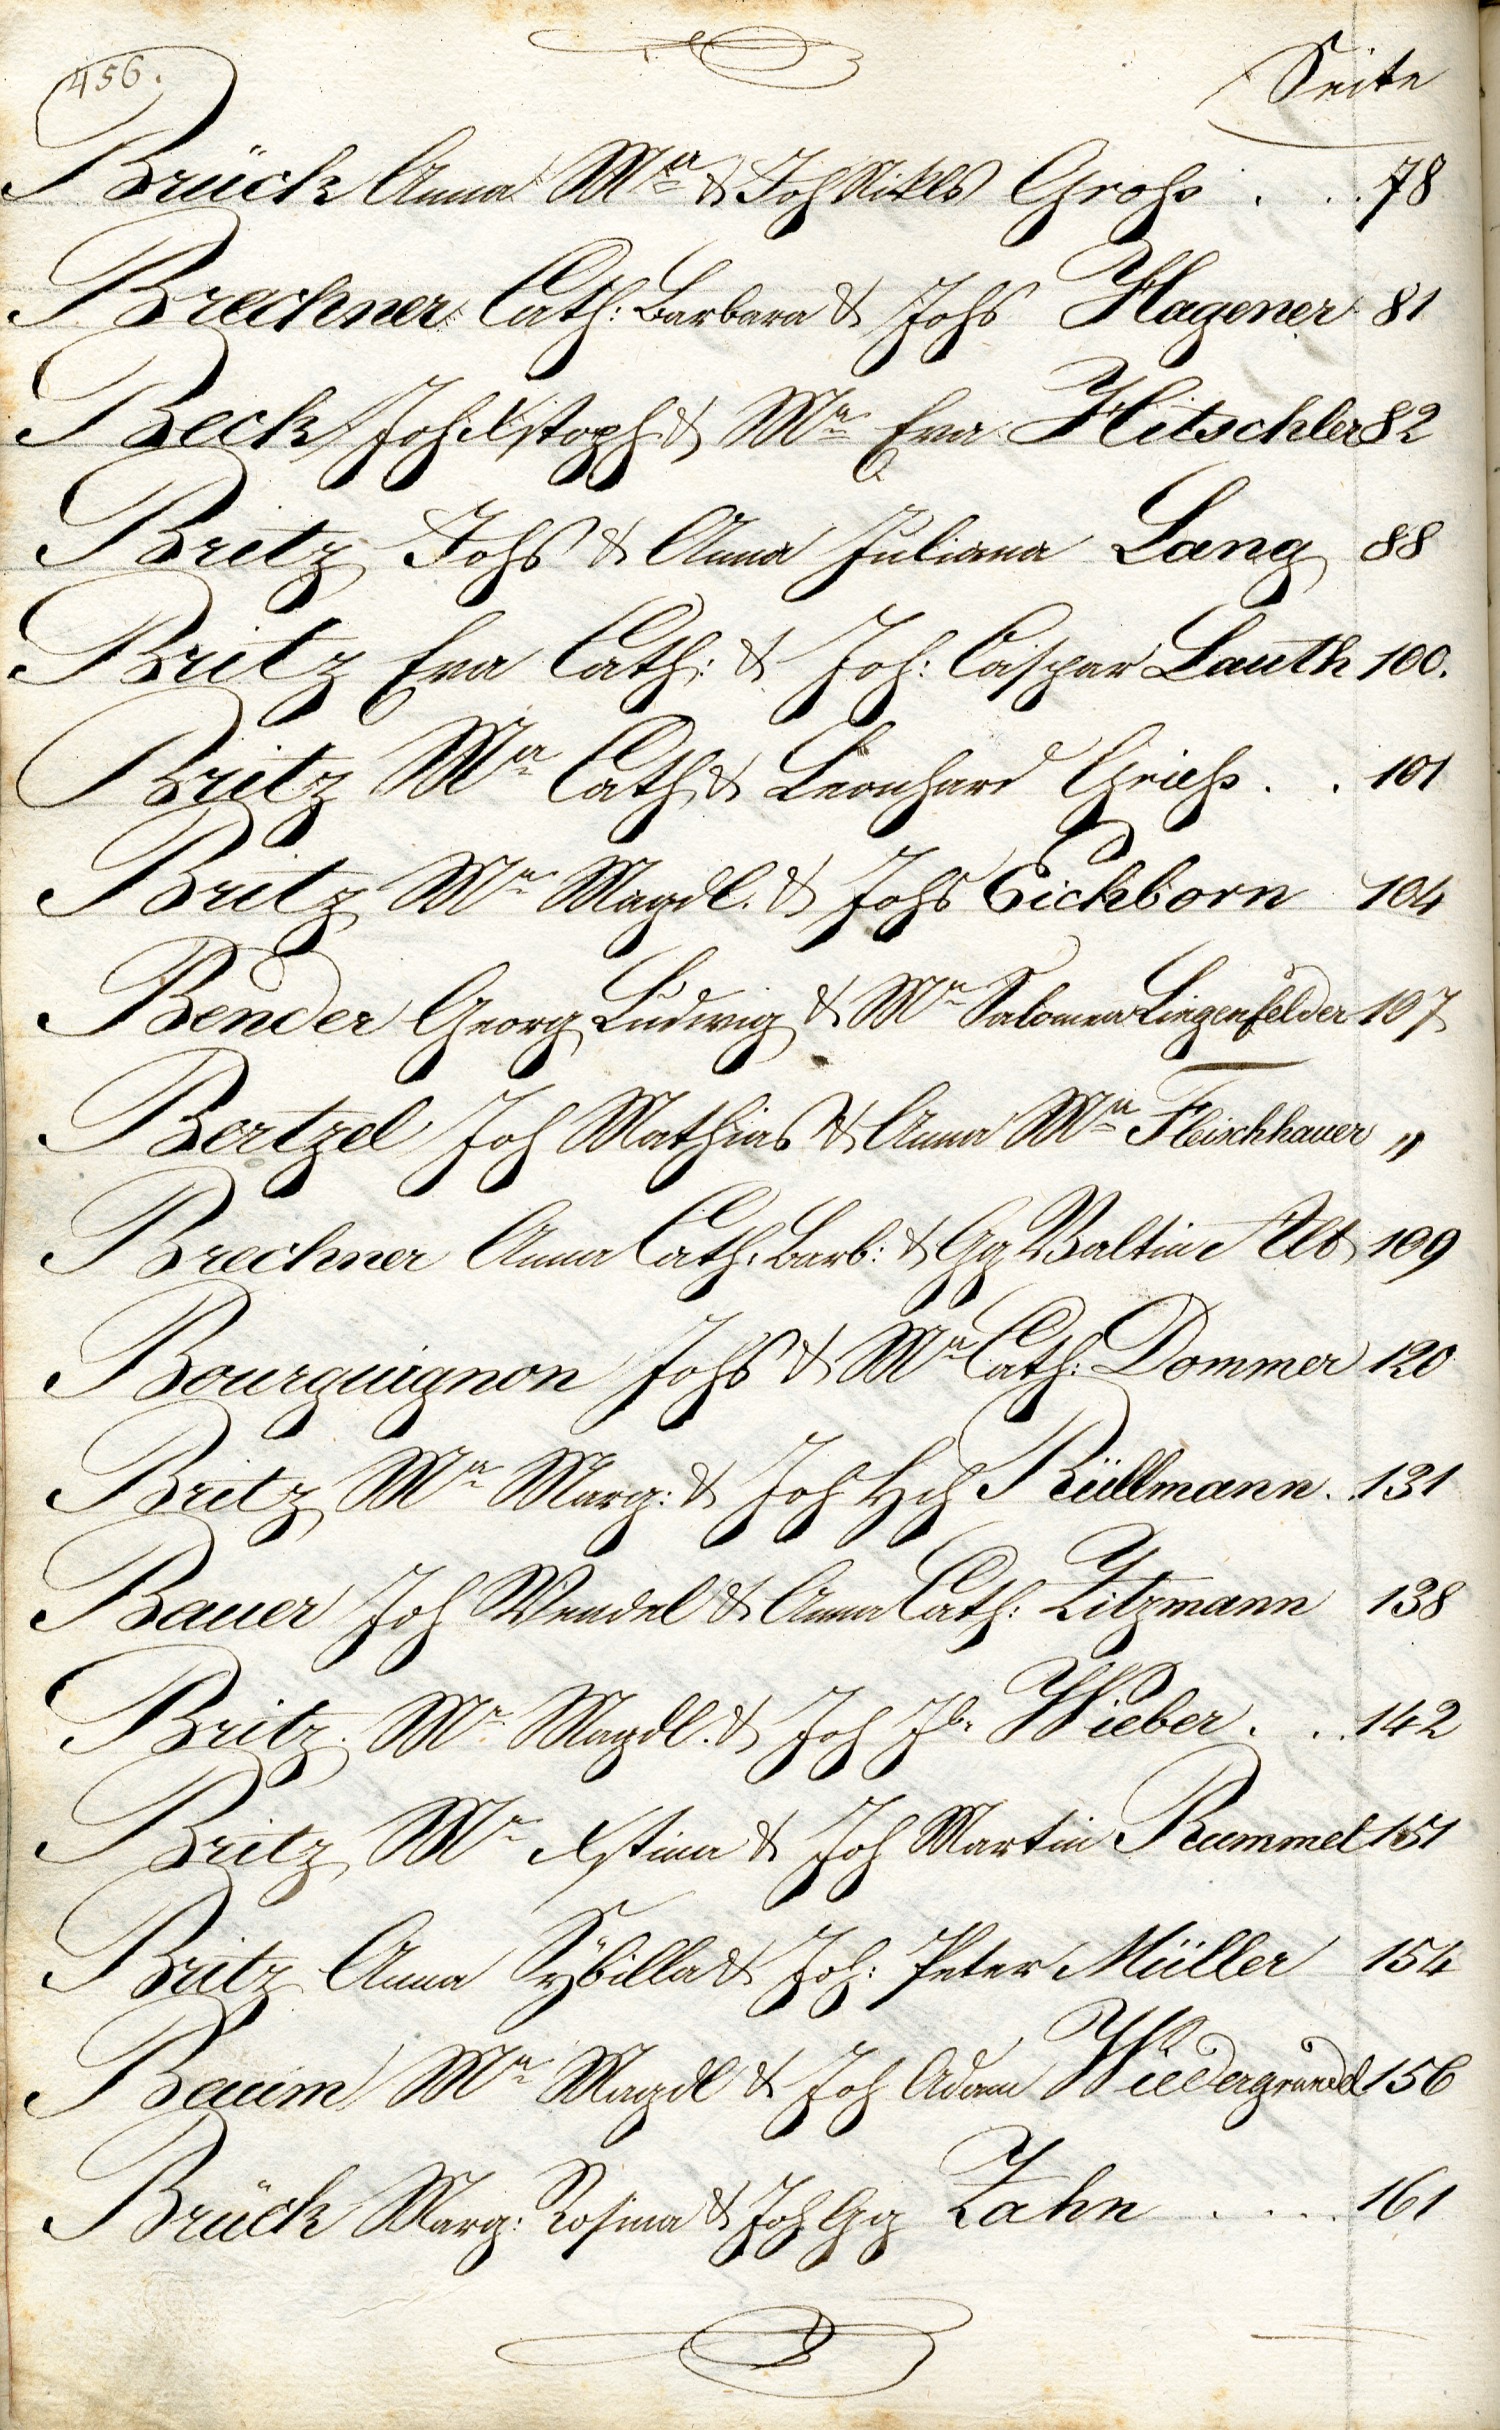 456.
Seite
Brück Anna Ma & Joh Nikls Groß . . . 78
Brechner Cath: Barbara & Johs Hagener 81
Beck Joh Xstoph & Ma Eva Hitschler 82
Britz Johs & Anna Juliana Lang 88
Britz Eva Cath: & Joh: Caspar Lauth 100.
Britz Ma Cath & Leonhard Grieß . . 101
Britz Ma Magdl. & Johs Eichborn 104
Bender Georg Ludwig & Ma Salomea Lingenfelder 107
Bertzel Joh Mathias & Anna Ma Fleischhauer "
Brechner Anna Cath. Barb: & Gg Valtin Alt 109
Bourguignon Johs & Ma Cath: Dommer 120
Britz Ma Marg: & Joh Hch Rüllmann . . 131
Bauer Joh Wendel & Anna Cath: Litzmann 138
Britz Ma Magdl. & Joh Jb. Wieber . . . 142
Britz Ma Xstina & Joh Martin Rummel 151
Britz Anna Sÿbilla & Joh: Peter Müller 154
Baum Ma Magdl & Joh Adam 156
Brück Marg: Rosina & Joh Gg Zahn . . . . 161